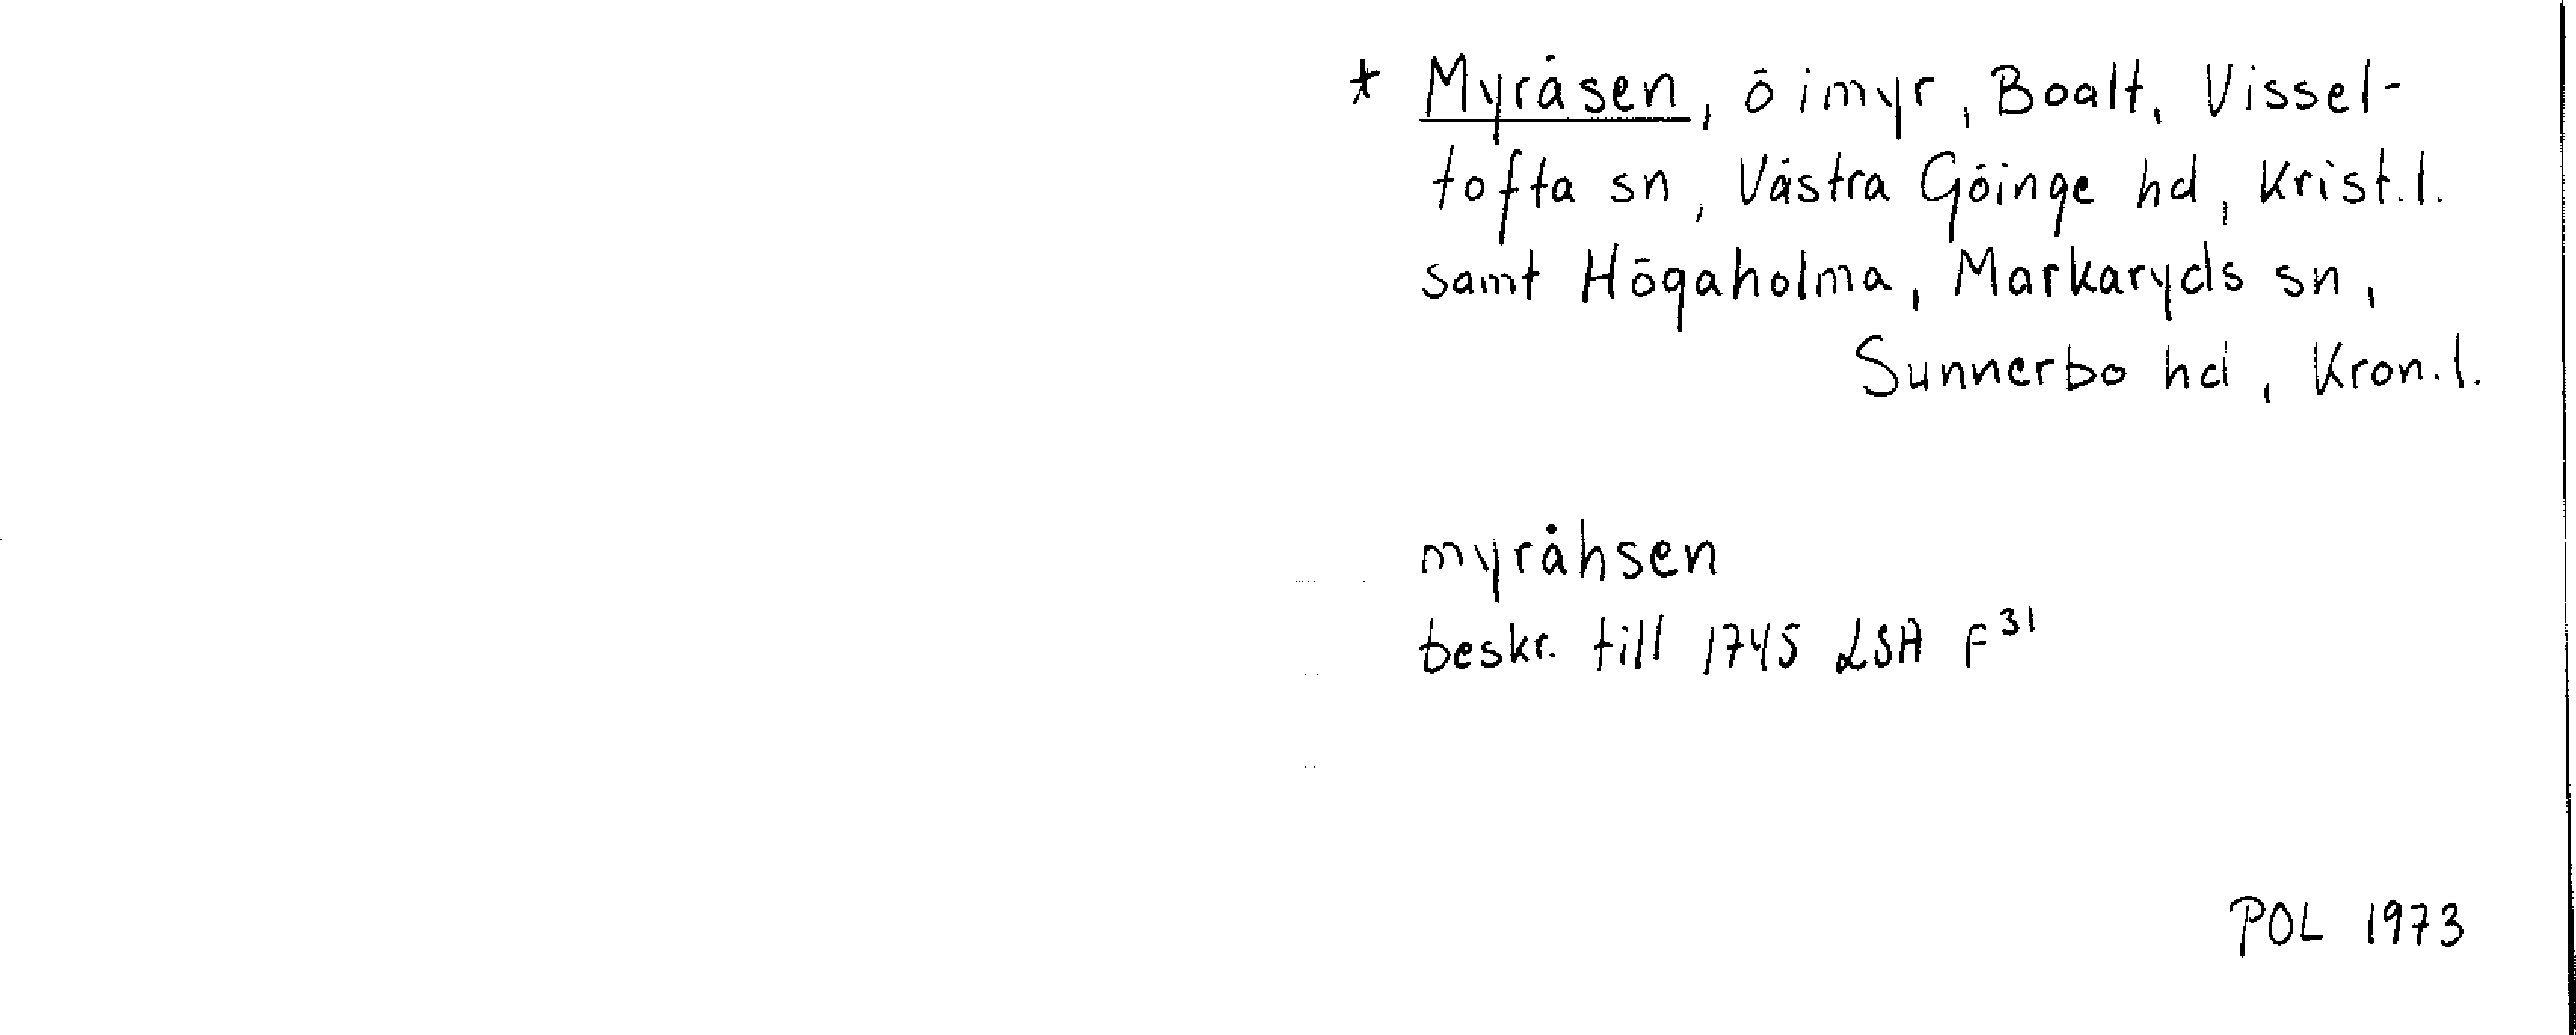 * Myråsen, ö i myr, Boalt, Vissel-
tofta sn, Västra Göinge hd, Krist.l.
samt Högaholma, Markaryds sn,
Sunnerbo hd, Kron.l.
myråhsen
beskr. till 1745 LSA F 31
POL 1973